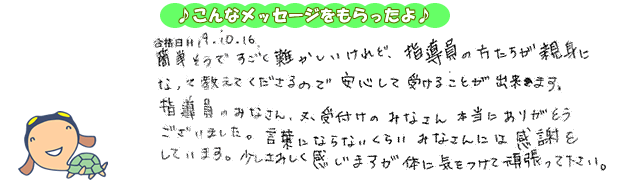 ♪こんなメッセージをもらったよ♪
合格日 H19.10.16.
簡単そうですごく難かしいけれど、指導員の方たちが親身に
なって教えてくださるので安心して受けることが出来ます。
指導員のみなさん、又、受付けのみなさん本当にありがとう
ございました。言葉にならないくらいみなさんには感謝を
しています。少しさみしく感じますが体に気をつけて頑張って下さい。